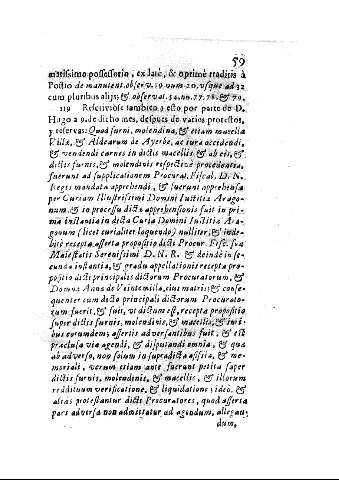 59
matissimo possessorio, ex latè, & optimè traditis à
Postio de manutent. observ. 19. num. 20. vsque ad 32
cum pluribus alijs; & observat. 54. nn. 77. 78. & 79.
119 Resetiviose tambien à esto por parte de D.
Hugo a 9. de dicho mes, despues de varios protestos,
y reservas: Quod furni, molendina, & etiam macella
Villæ, & Aldearum de Ayerbe, ac iura occidendi,
& vendendi carnes in dictis macellis & ab eis, &
dictis furnis, & molendinis respectivè procedentia,
fuerunt ad supplicationem Procurat. Fiscal. D. N.
Regis mandata apprehendi, & fuerunt apprehensa
per Curiam Illustrissimi Domini Iustitiæ Arago-
num, & in processu dictæ apprehensionis fuit in pri-
ma instantia in dicta Curia Domini Iustitiæ Ara-
gonum (licet curialiter loquendo) nulliter, & inde-
bitè recepta asserta propositio dicti Procur. Fisc. suæ
Maiestatis Serenissimi D. N. R. & deindè in se-
cunda instantia, & gradu appellationis recepta pro-
positio dicti principalis dictorum Procuratorum, &
Domnæ Annæ de Veintemilla, eius matris; & conse-
quenter cum dicto principali dictorum Procurato-
rum fuerit, & fuit, vt dictum est, recepta propositio
super dictis furnis, molendinis, & macellis, & iuri-
bus eorumdem assertis adversantibus fuit, & est
præclusa via agendi, & disputandi omnia, & quæ
ab adverso, non solum in supradicta assia, & me-
moriali, verum etiam ante fuerunt petita super
dictis furnis, molendinis, & macellis, & illorum
reddituum verificatione, & liquidatione; ideò, &
aliàs protestantur dicti Procuratores, quod asserta
pars adversa non admittatur ad agendum, allegan-
dum,